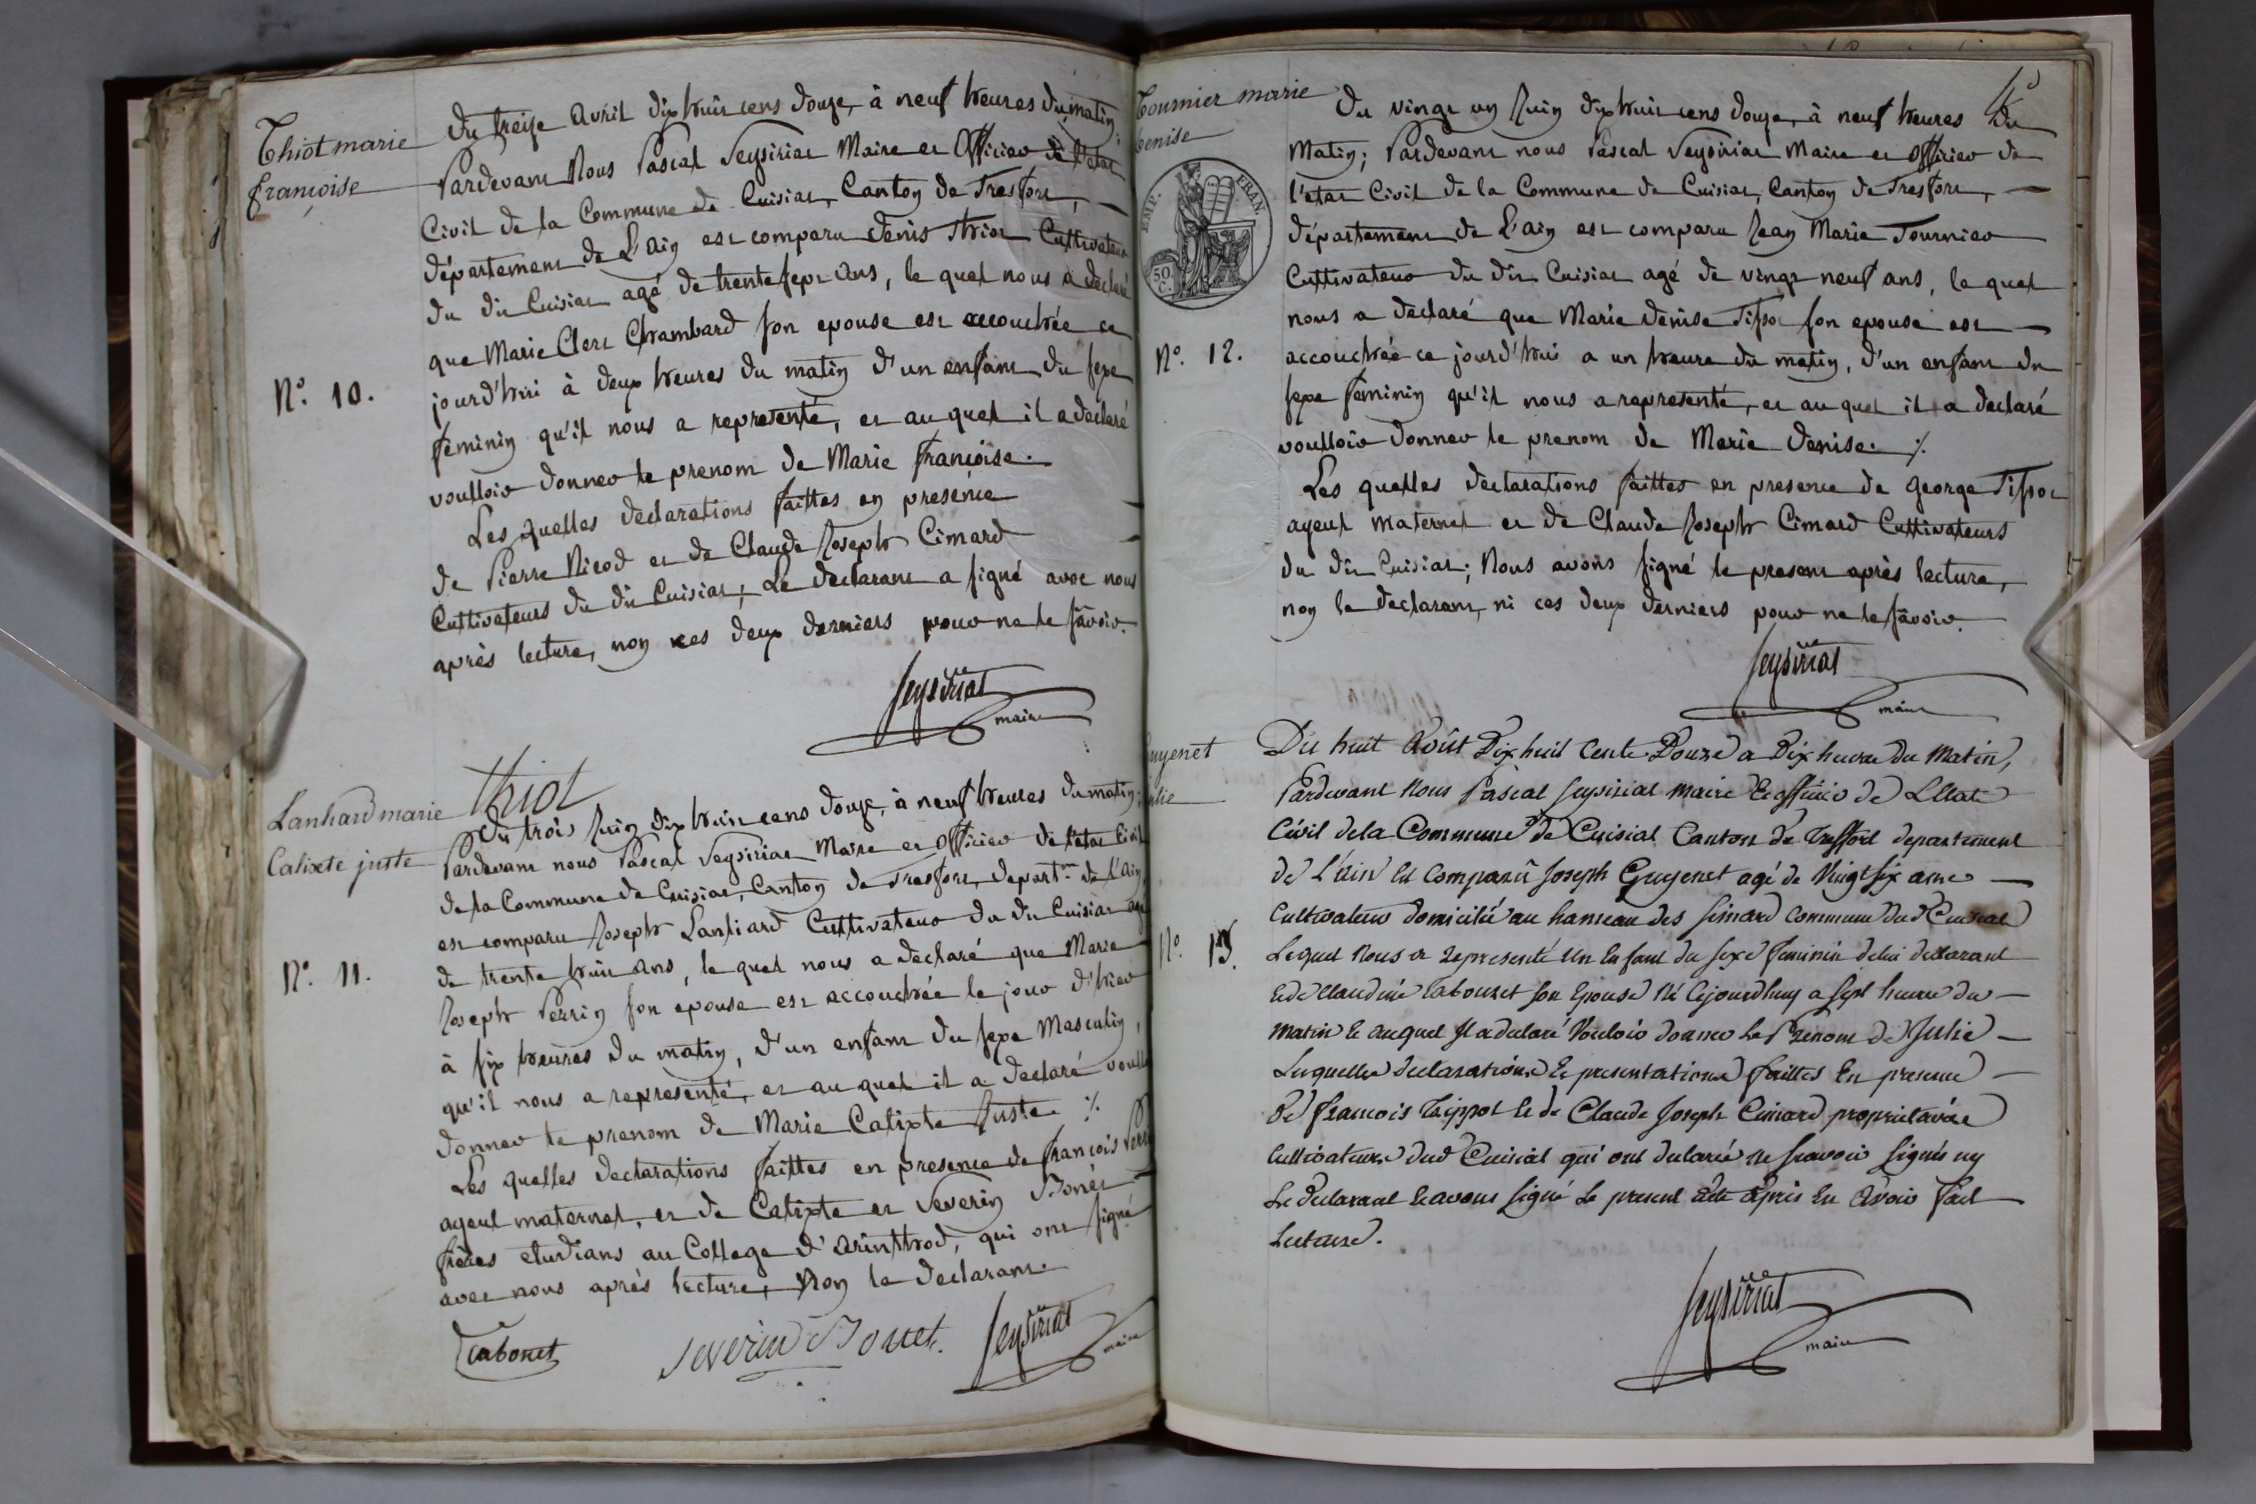 Thiot marie
françoise
N.o 10.
Du treize avril dix huit cens douze, à neuf heures du matin;
Pardevant Nous Pascal Seysiriat Maire et Officier de l'etat
Civil de la Commune de Cuisiat, Canton de Tresfort,
département de L'ain est comparu denis thiot Cultivateur
du dit Cuisiat agé de trente sept ans, le quel nous a déclaré
que Marie Clert Chambard son epouse est accouchée ce
jourd'hui à deux heures du matin d'un enfant du sexe
féminin qu'il nous a representé, et au quel il a déclaré
voulloir donner le prenom de Marie françoise.
Les quelles déclarations faittes en présence
de Pierre Nicod et de Claude Joseph Cimard
Cultivateurs du dit Cuisiat, Le declarant a signé avec nous
après lecture, non ces deux derniers pour ne le sâvoir.
Seysiriat
maire
thiot
Lanhard marie
Calixte juste
N.o 11.
Du trois Juin dix huit cens douze, à neuf heures du matin;
Pardevant nous Pascal Seysiriat Maire et Officier de l'etat Civil
de la Commune de Cuisiat, Canton de Tresfort, depart.nt de l'Ain
est comparu Joseph Lanhard Cultivateur du dit Cuisiat agé
de trente huit ans, le quel nous a déclaré que Marie
Joseph Perrin son epouse est accouchée le jour d'hier
à six heures du matin, d'un enfant du sexe Masculin,
qu'il nous a representé, et au quel il a declaré voull
donner le prenom de Marie Calixte Juste. ∕.
Les quelles declarations faittes en presence de françois Perr
ayeul maternel, et de Calixte et Severin Bonet
frères etudians au College d'arinthod, qui ont signé
avec nous après lecture, Non le declarant.
Severin Bonet. Seysiriat
maire
Tournier marie
denise
EMP. FRAN.
50
C.
N.o 12.
Du vingt un Juin dix huit cens douze, à neuf heures du
Matin; Pardevant nous Pascal Seysiriat Maire et Officier de
l'etat Civil de la Commune de Cuisiat, Canton de Tresfort,
département de L'ain est comparu Jean Marie Tournier
Cultivateur du dit Cuisiat agé de vingt neuf ans, le quel
nous a déclaré que Marie denise Tissot son epouse est
accouchée ce jourd'hui a un heure du matin, d'un enfant du
sexe féminin qu'il nous a representé, et au quel il a declaré
voulloir donner le prenom de Marie denise. ∕.
Les quelles déclarations faittes en presence de george Tissot
ayeul maternel et de Claude Joseph Cimard Cultivateurs
du dit Cuisiat; Nous avons signé le present après lecture,
non le declarant, ni ces deux derniers pour ne le sâvoir.
Seysiriat
maire
uyenet
ulie
N.o 13.
Du huit Août Dix huit Cent Douze a Dix heures du Matin,
Pardevant Nous Pascal Seysiriat maire Et officier de L'Etat
Civil de la Commune de Cuisiat Canton de Treffort departement
de L'ain Est Comparû Joseph Guyenet agé de Vingt six ans
Cultivateur domicilié au hameau des Simard commune dud Cuisiat
Lequel Nous a Representé Un Enfant du sexe feminin de lui declarant
Et de Claudine labouret son Epouse Né Cejourdhuy a sept heures du
matin Et auquel Il a declaré Vouloir donner Le Prenom de Julie
Lesquelles declarations Et presentations faittes En presence
De francois Tippot Et de Claude Joseph Cimard proprietaires
Cultivateurs dud Cuisiat qui ont declaré ne scavoir signer ny
Le declarant Et avons signé Le present acte après En Avoir fait
Lecture.
Seysiriat
maire